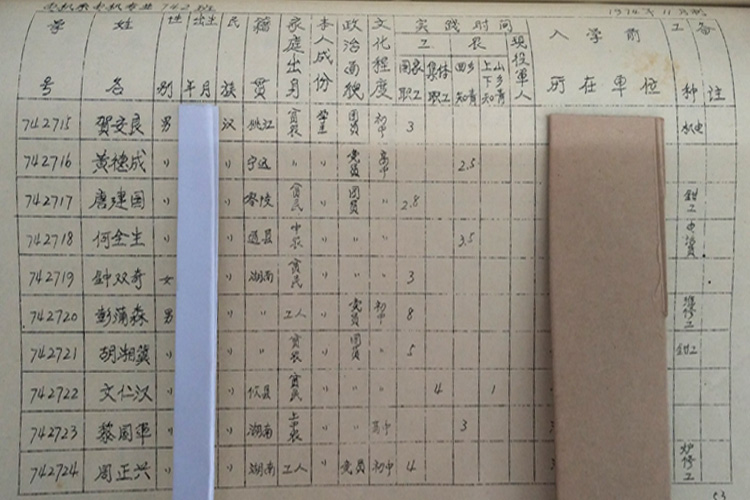 专业 742班 1974年11月
学号 姓名 性别 出生年月 民族 籍贯 家庭出身 本人成份 政治面貌 文化程度 实践时间 工 农 国家职工 集体职工 回乡知青 上山下乡知青 现役军人 入学前所在单位 工种 备注
742715 贺安良 男 汉 桃江 贫农 学生 团员 初中 3 机电
742716 黄德成 〃 〃 宁远 〃 〃 党员 高中 2.5
742717 唐建国 〃 〃 零陵 贫民 〃 团员 〃 2.8 钳工
742718 何全生 〃 〃 道县 中农 〃 〃 〃 3.5
742719 钟双奇 女 〃 湖南 贫民 〃 〃 〃 3
742720 彭蒲森 男 〃 〃 工人 〃 党员 初中 8 维修工
742721 胡湘冀 〃 〃 〃 贫农 〃 团员 〃 5 钳工
742722 文仁汉 〃 〃 攸县 贫民 〃 〃 〃 4 1
742723 黎国军 〃 〃 湖南 上中农 〃 〃 高中 3
742724 周正兴 〃 〃 湖南 工人 〃 党员 初中 4 炉修工
53